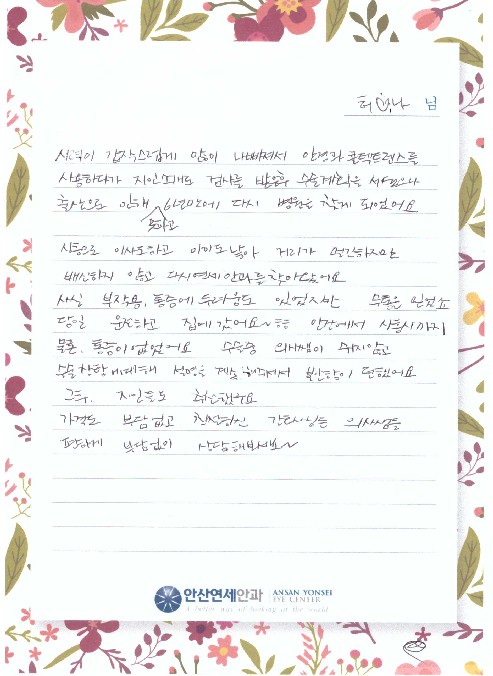 허 님
시력이 갑자스럽게 많이 나빠져서 안경과 콜텍트렌즈를
사용하다가 지인소개로 검사를 받은후 수술계획을 세웠으나
출산으로 인해 6년만에 다시 병원을 찾게 되었어요
못하고
시흥으로 이사도하고 아이도낳아 거리가 멀긴하지만
배신하지 않고 다시연세안과를 찾아왔어요
사실 부작용, 통증에 두려움도 있었지만 수술은 받았죠
당일 운전하고 집에 갔어요~ 안산에서 시흥시까지
물론, 통증이 없었어요 수술중 의사쌤이 쉬지않고
수술상황에대해 설명을 계속 해주셔서 불안감이 덜했어요
그후, 지인들도 취소했어요
가격도 부담없고 친절하신 간호사님들 의사쌤들
편하게 부담없이 상담해보세요~
안산연세안과 ANSAN YONSEI EYE CENTER
A better way of looking at the world